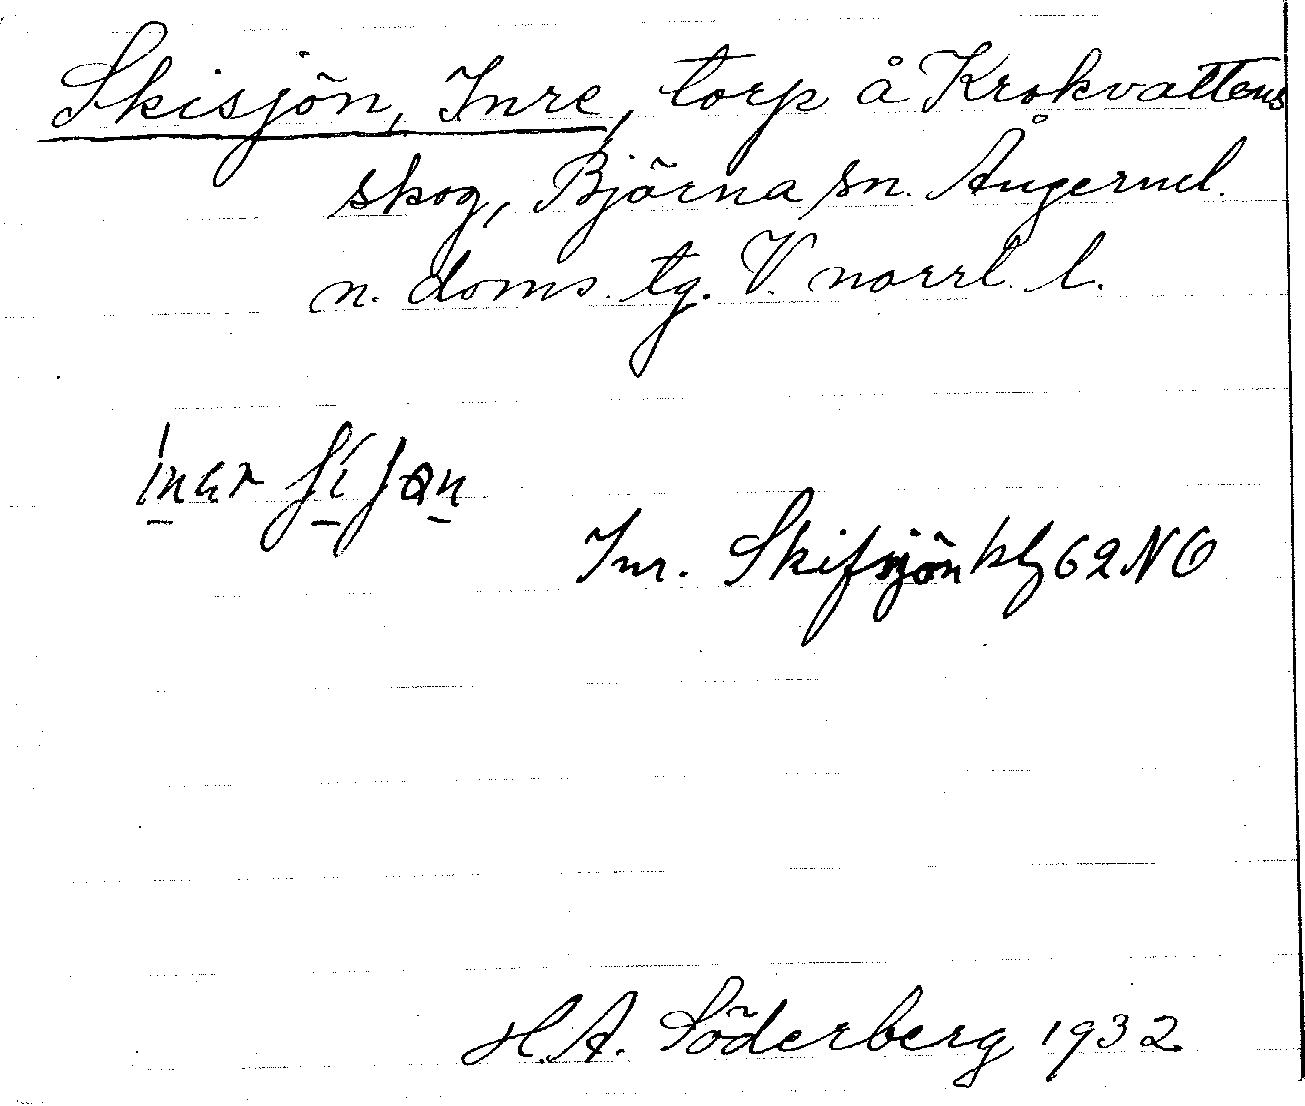 Skisjön, Inre, torp å Krokvattens
skog, Björna sn. Ångerml.
n. doms. tg. V. norrl. l.
Inr. Skifsjön kbl 62 NO
H.A. Söderberg 1932